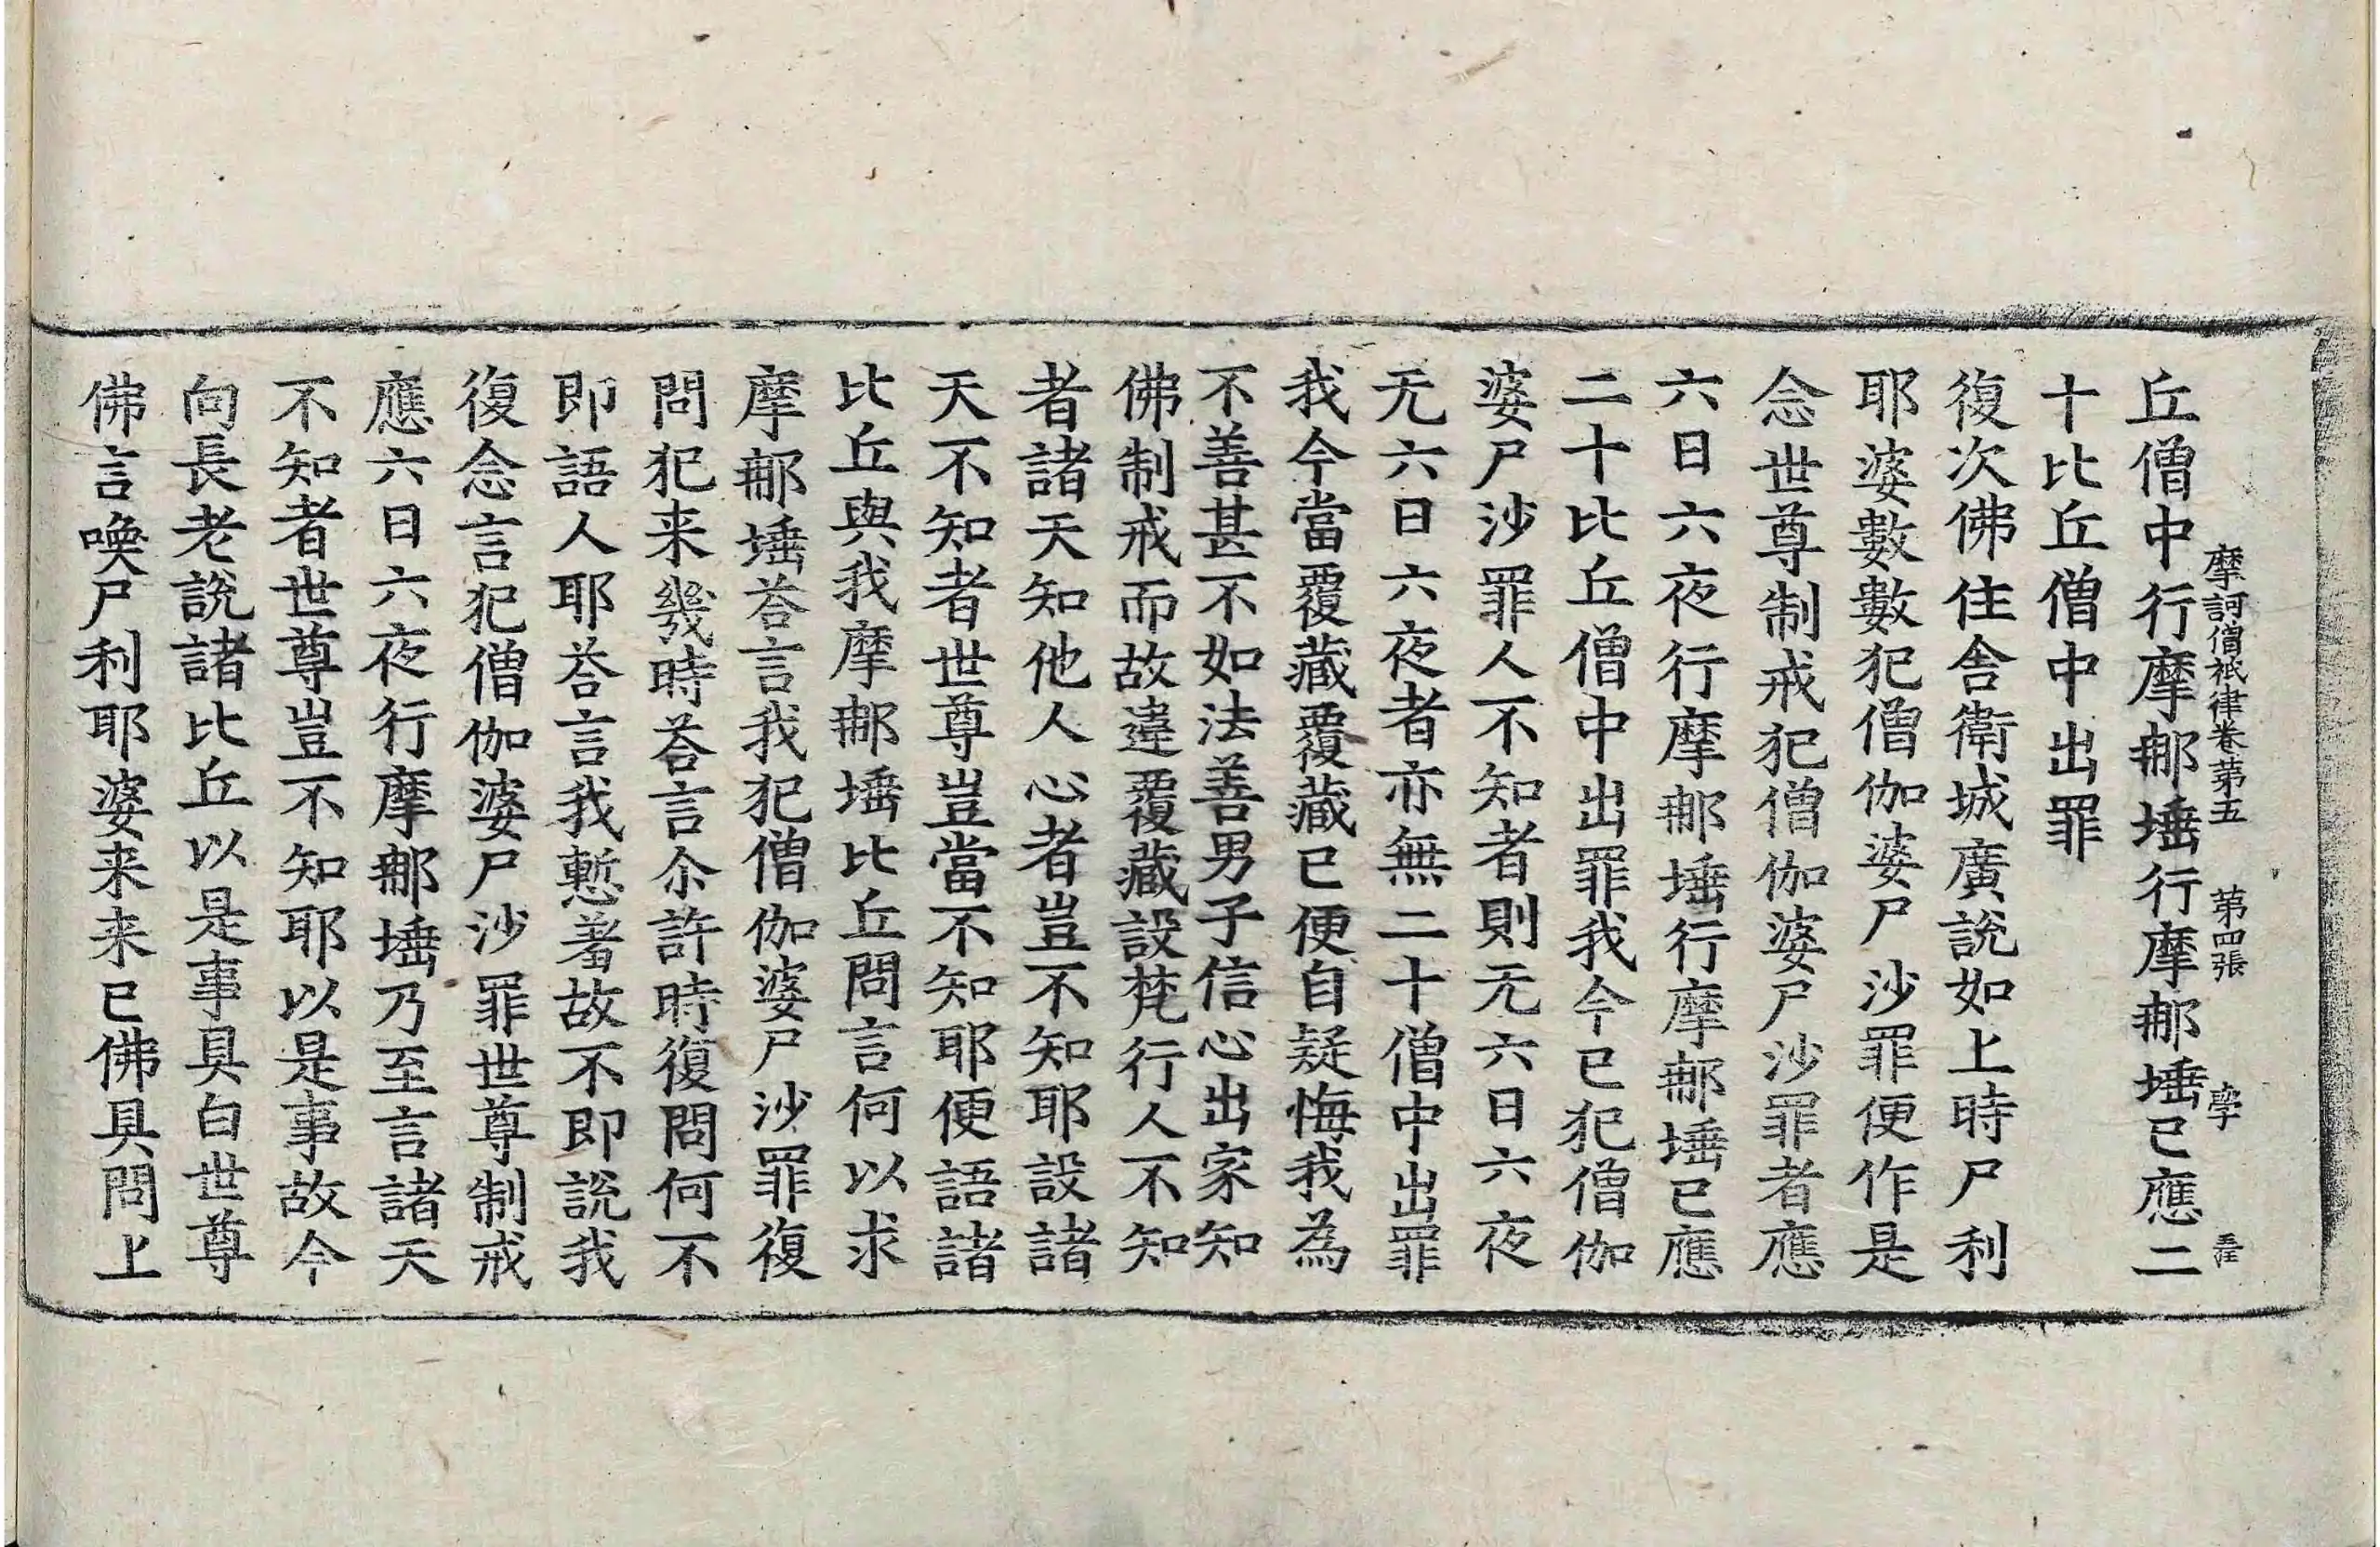 摩訶僧祇律卷第五　第四張　學
丘僧中行摩𨚗埵行摩𨚗埵已應二
十比丘僧中出罪
復次佛住舍衛城廣說如上時尸利
耶婆數數犯僧伽婆尸沙罪便作是
念世尊制戒犯僧伽婆尸沙罪者應
六日六夜行摩𨚗埵行摩𨚗埵已應
二十比丘僧中出罪我今已犯僧伽
婆尸沙罪人不知者則无六日六夜
无六日六夜者亦無二十僧中出罪
我今當覆藏覆藏已便自疑悔我為
不善甚不如法善男子信心出家知
佛制戒而故違覆藏設梵行人不知
者諸天知他人心者豈不知耶設諸
天不知者世尊豈當不知耶便語諸
比丘與我摩𨚗埵比丘問言何以求
摩𨚗埵荅言我犯僧伽婆尸沙罪復
問犯来幾時荅言尒許時復問何不
即語人耶荅言我慙著故不即說我
復念言犯僧伽婆尸沙罪世尊制戒
應六日六夜行摩𨚗埵乃至言諸天
不知者世尊豈不知耶以是事故今
向長老說諸比丘以是事具白世尊
佛言喚尸利耶婆来来已佛具問上